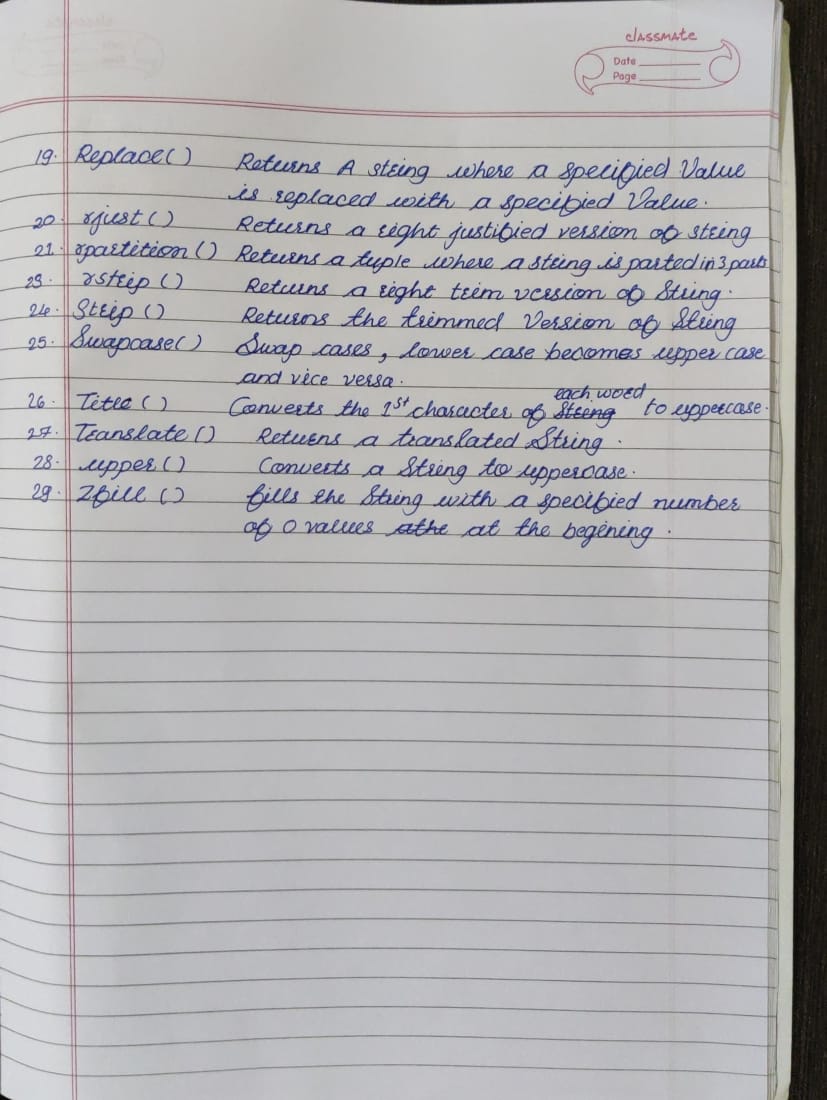 classmate
Date
Page
19. Replace() Returns A string where a specified Value
is replaced with a specified Value.
20. rjust() Returns a right justified version of string
21. rpartition() Returns a tuple where a string is parted in 3 parts
23. rstrip() Returns a right trim version of String.
24. Strip() Returns the trimmed Version of String
25. Swapcase() Swap cases, lower case becomes upper case
and vice versa.
each word
26. Title() Converts the 1st character of String to uppercase.
27. Translate() Returns a translated String.
28. upper() Converts a String to uppercase.
29. Zfill() fills the String with a specified number
of 0 values athe at the begening.